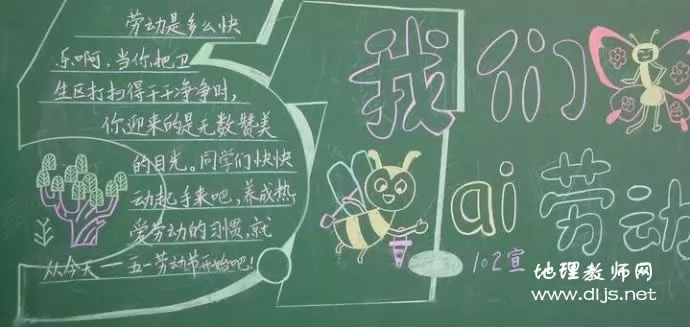 劳动是多么快
乐啊,当你把卫
生区打扫得干干净净时,
你迎来的是无数赞美
的目光。同学们快快
动起手来吧,养成热
爱劳动的习惯,就
从今天——五一劳动节开始吧!
我们
ai劳动
102宣
地理教师网
www.dljs.net